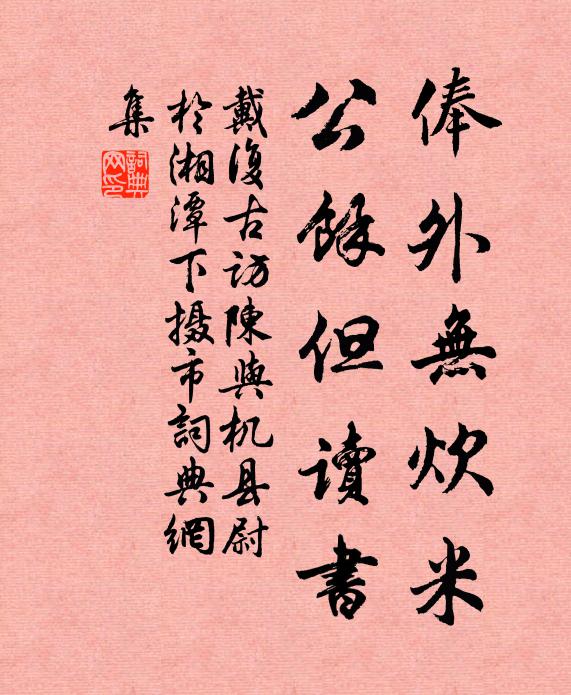 俸外無炊米
公餘但讀書
戴復古訪陳與机县尉
於湘潭下摄市詞典網
集
詞典網印